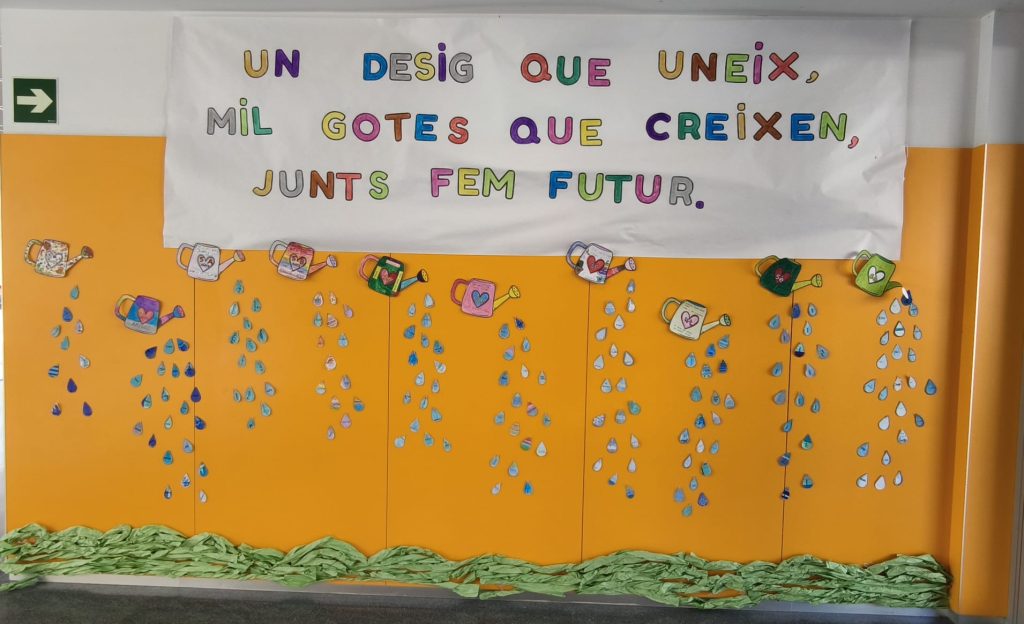 UN DESiG QUE UNEiX,
MiL GOTES QUE CREiXEN,
JUNTS FEM FUTUR.